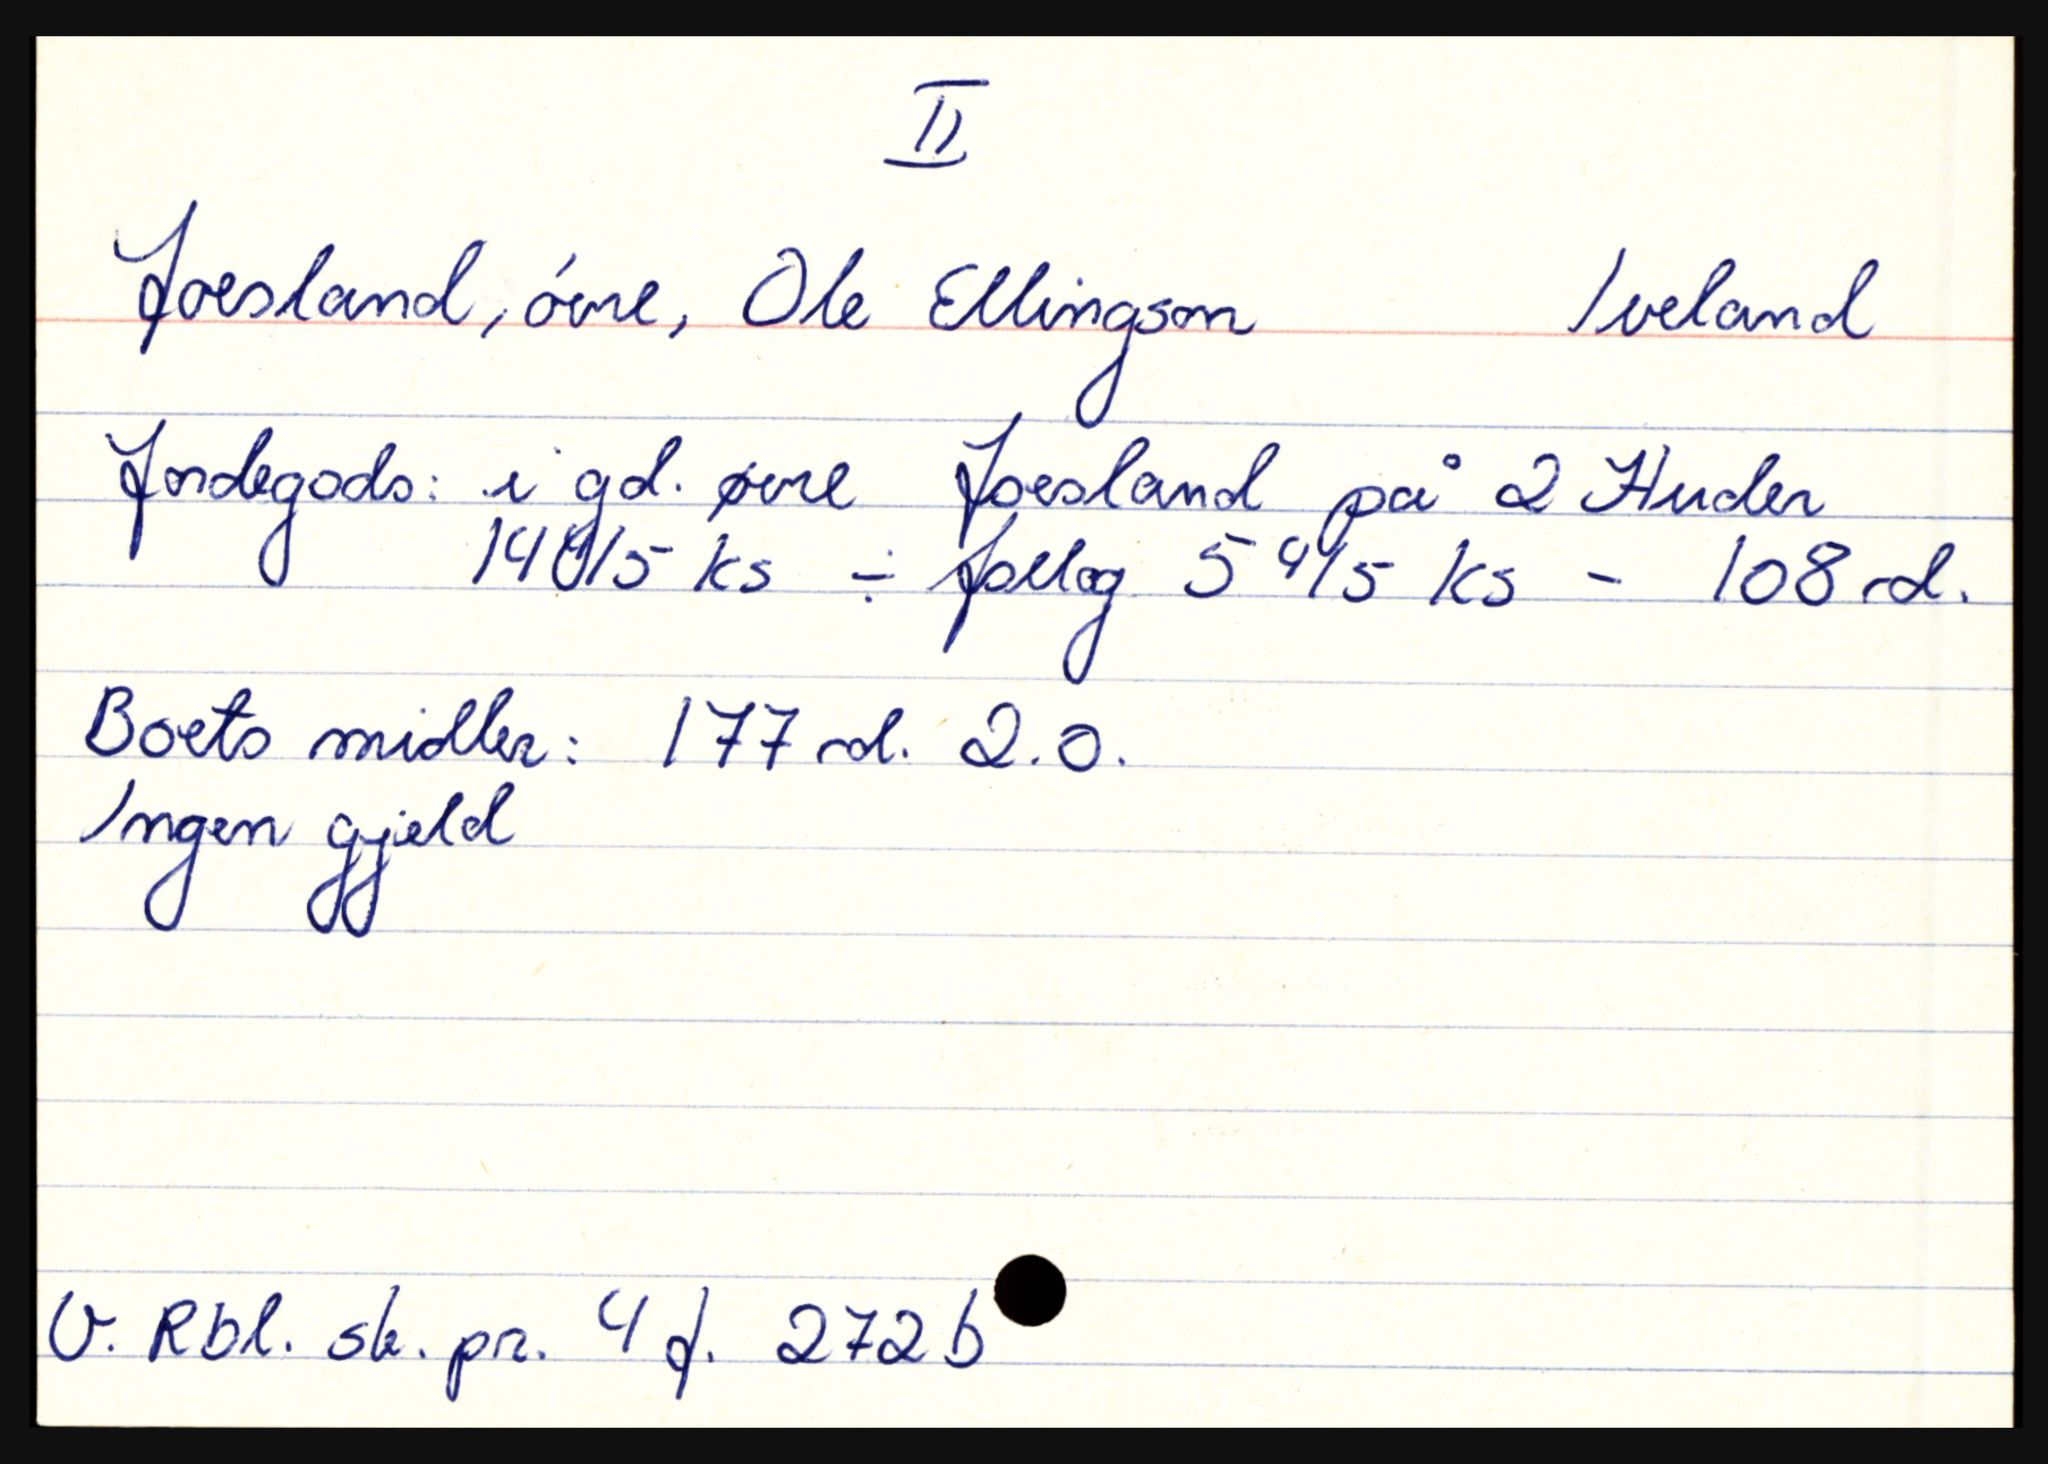 II
Joesland, øvre, Ole Ellingson Iveland
Jordegods: i gd. øvre Joesland på 2 Huder
14 4/5 ks ÷ follog 5 4/5 ks - 108 rd.
Boets midler: 177 rd. 2.0.
Ingen gjeld
V. Rbl. sk. pr. 4 f. 272b